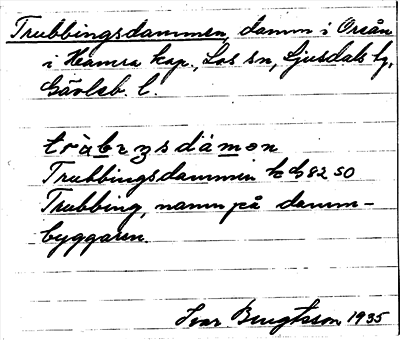 Trubbingsdammen, damm i Oreån
i Hamra kap., Los sn, Ljusdals tg,
Gävleb. l.
Trubbingsdammen
Trubbing, namn på damm-
byggaren.
Ivar Bengtsson 1935